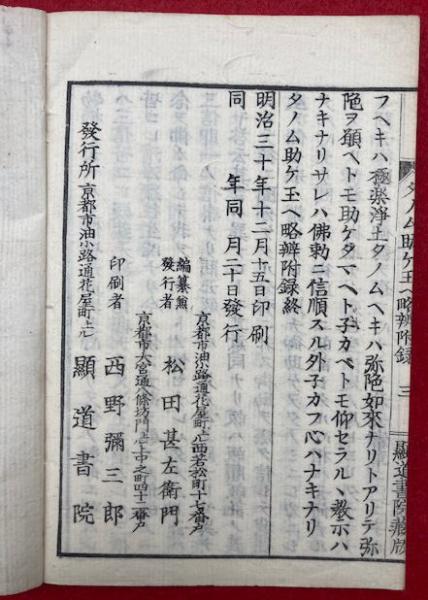 タノム助ケ玉ヘ略辨附録 三 顯道書院藏版
フヘキハ極楽浄土タノムヘキハ弥陀如來ナリトアリテ弥
陀ヲ頼ヘトモ助ケタマヘト子カベトモ仰セラルヽ敎示ハ
ナキナリサレハ佛勅ニ信順スル外子カフ心ハナキナリ
タノム助ケ玉ヘ略辨附録終
明治三十年十二月十五日印刷
同 年同 月二十日發行
京都市油小路通花屋町上ル西若松町十七番戸
編纂兼發行者 松田甚左衛門
京都市大宮通八條坊門上ル中之町四十二番戸
印刷者 西野彌三郎
發行所 京都市油小路通花屋町上ル 顯道書院